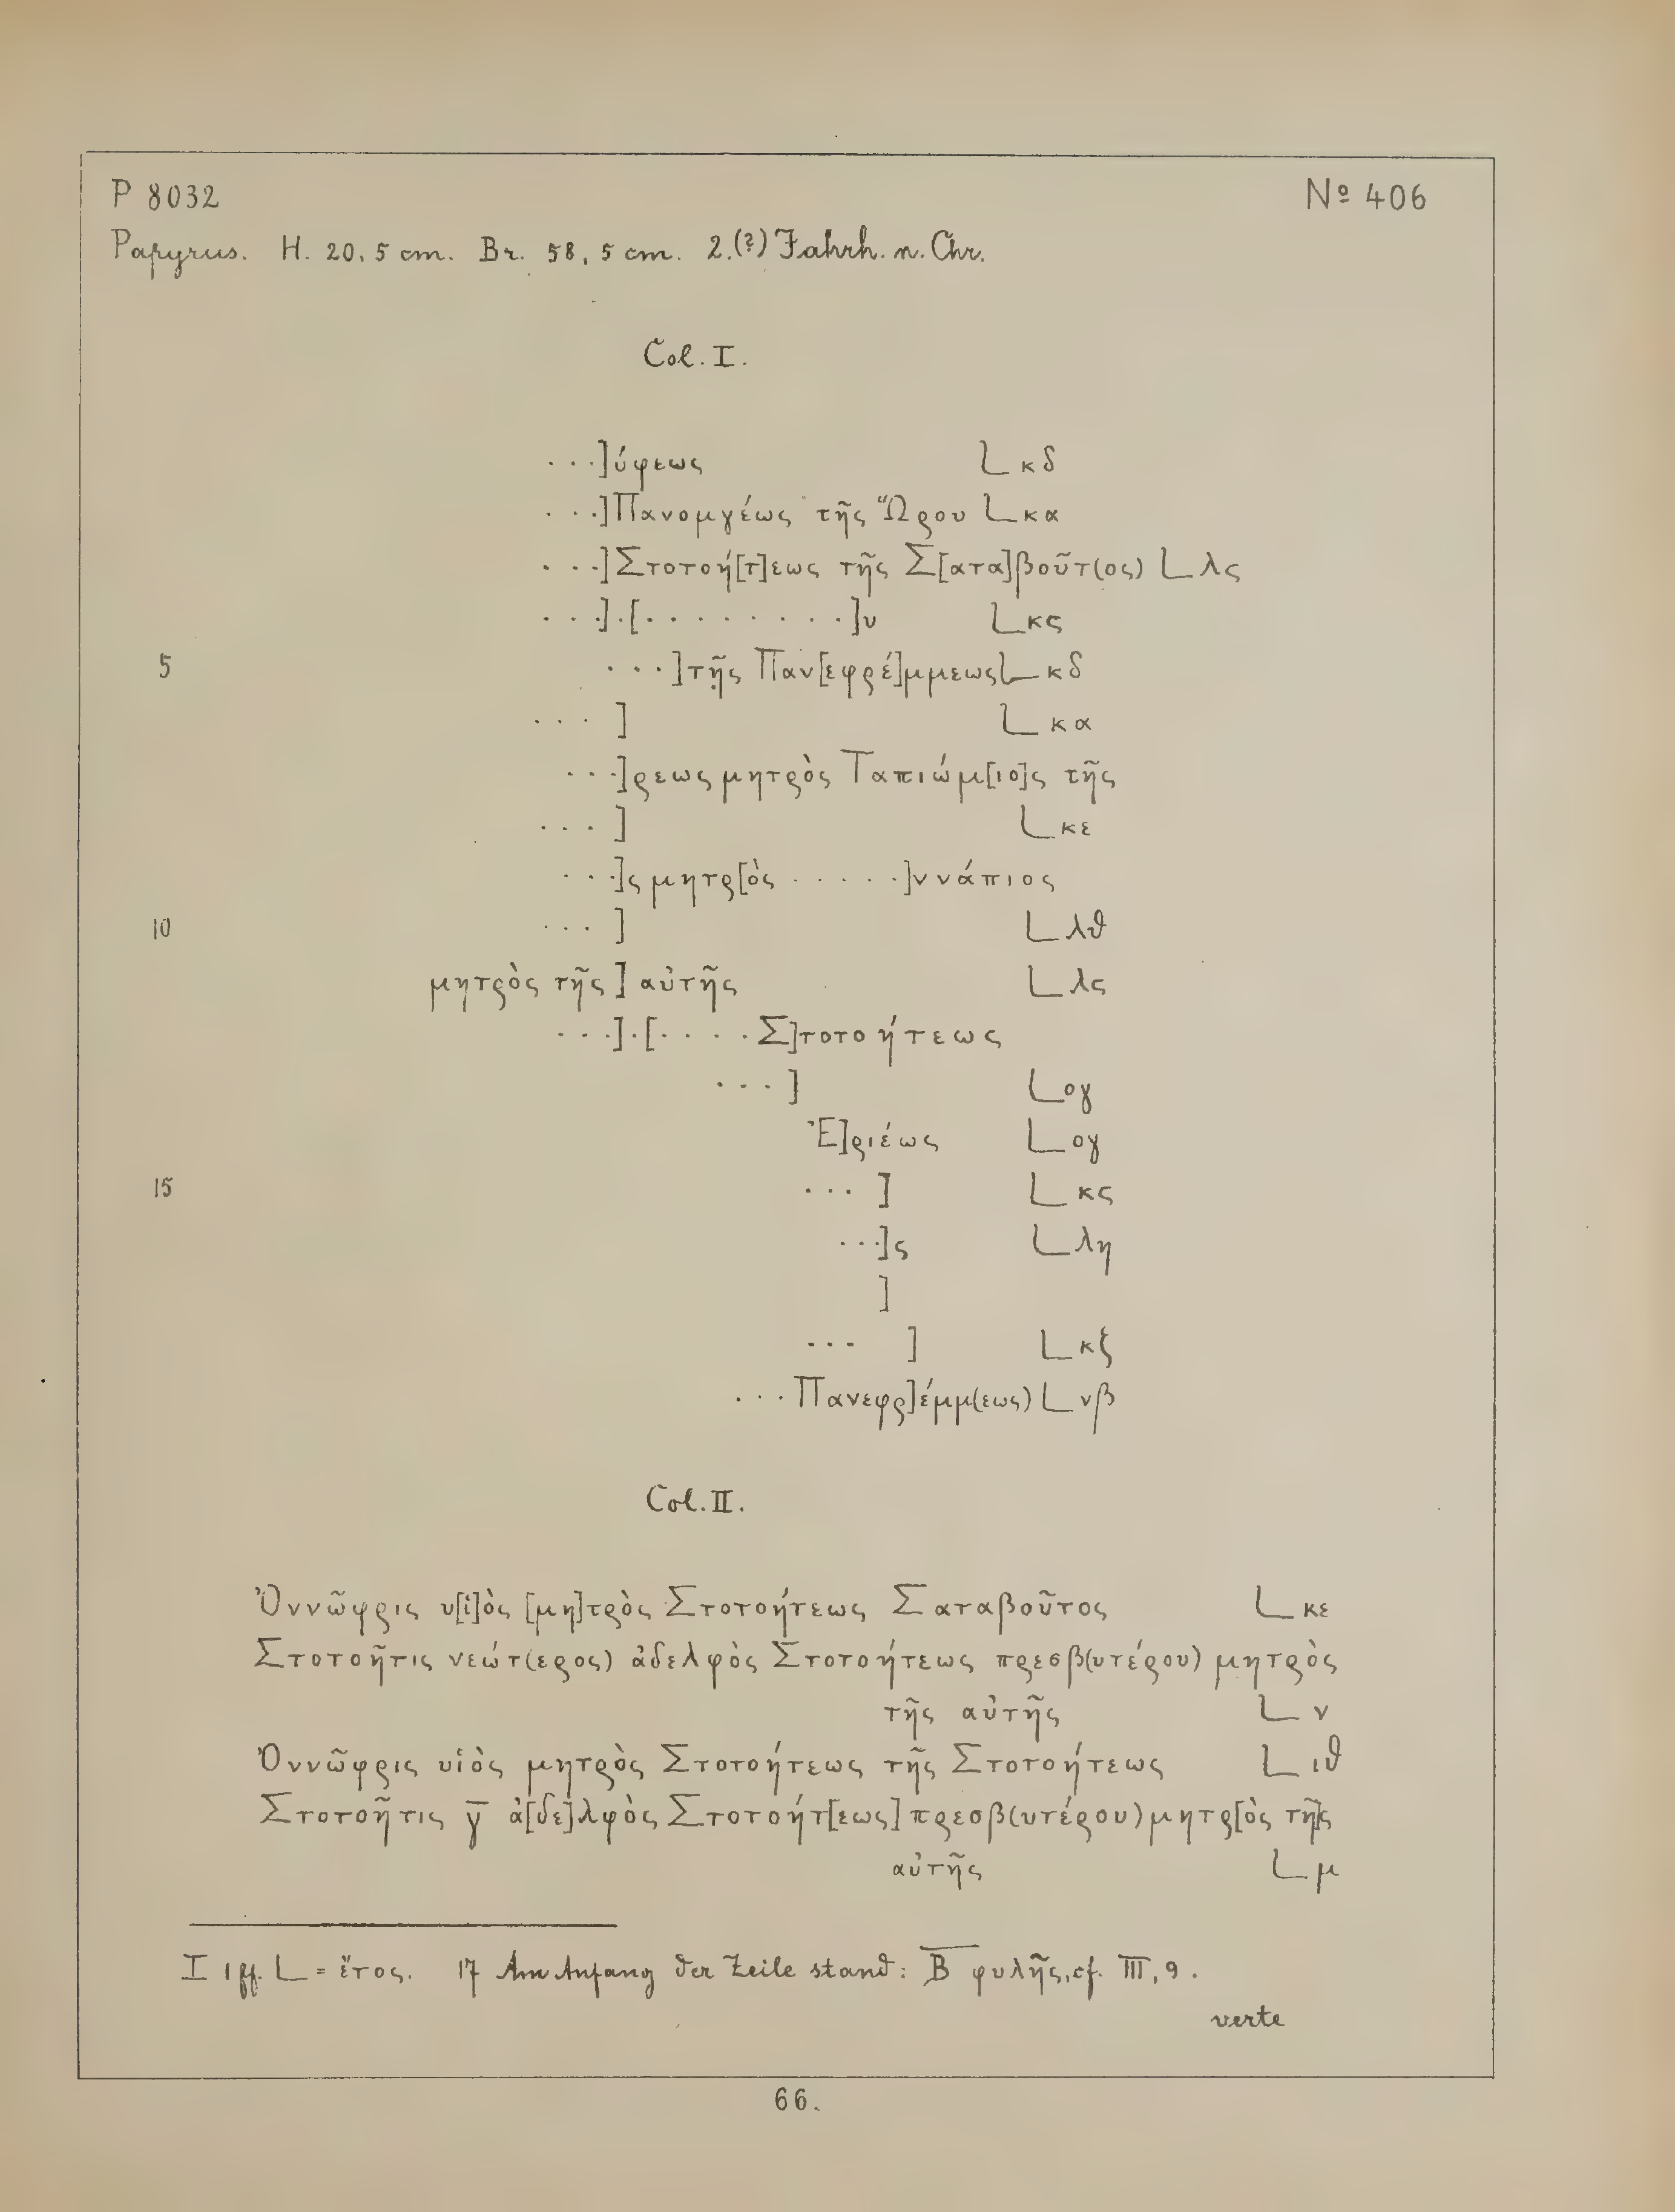 P 8032 Nº 406
Papyrus. H. 20,5 cm. Br. 58,5 cm. 2.(?) Jahrh. n. Chr.
Col. I.
...]ύφεως L κδ
...]Πανομγέως τῆς Ὥρου L κα
...]Στοτοή[τ]εως τῆς Σ[ατα]βοῦτ(ος) L λς
...].[.........]υ L κς
5 ...]τῆ̣ς Παν[εφρέ]μμεως L κδ
... ] L κα
...]ρεως μητρὸς Ταπιώμ[ιο]ς τῆς
... ] L κε
...]ς μητρ[ὸς ......]ννάπιος
10 ... ] L λθ
μητρὸς τῆς ] αὐτῆς L λς
...].[....Σ]τοτοήτεως
... ] L ογ
Ἐ]ριέως L ογ
15 ... ] L κς
...]ς L λη
]
... ] L κξ
...Πανεφρ]έμμ(εως) L νβ
Col. II.
Ὀννῶφρις υ[ἱ]ὸς [μη]τρὸς Στοτοήτεως Σαταβοῦτος L κε
Στοτοῆτις νεώτ(ερος) ἀδελφὸς Στοτοήτεως πρεσβ(υτέρου) μητρὸς
τῆς αὐτῆς L ν
Ὀννῶφρις υἱὸς μητρὸς Στοτοήτεως τῆς Στοτοήτεως L ιθ
Στοτοῆτις γ̅ ἀ[δε]λφὸς Στοτοήτ[εως] πρεσβ(υτέρου) μητρ[ὸς τῆ]ς
αὐτῆς L μ
I 1 ff. L = ἔτος. 17 Am Anfang der Zeile stand: B̅ φυλῆς, cf. III, 9.
verte
66.